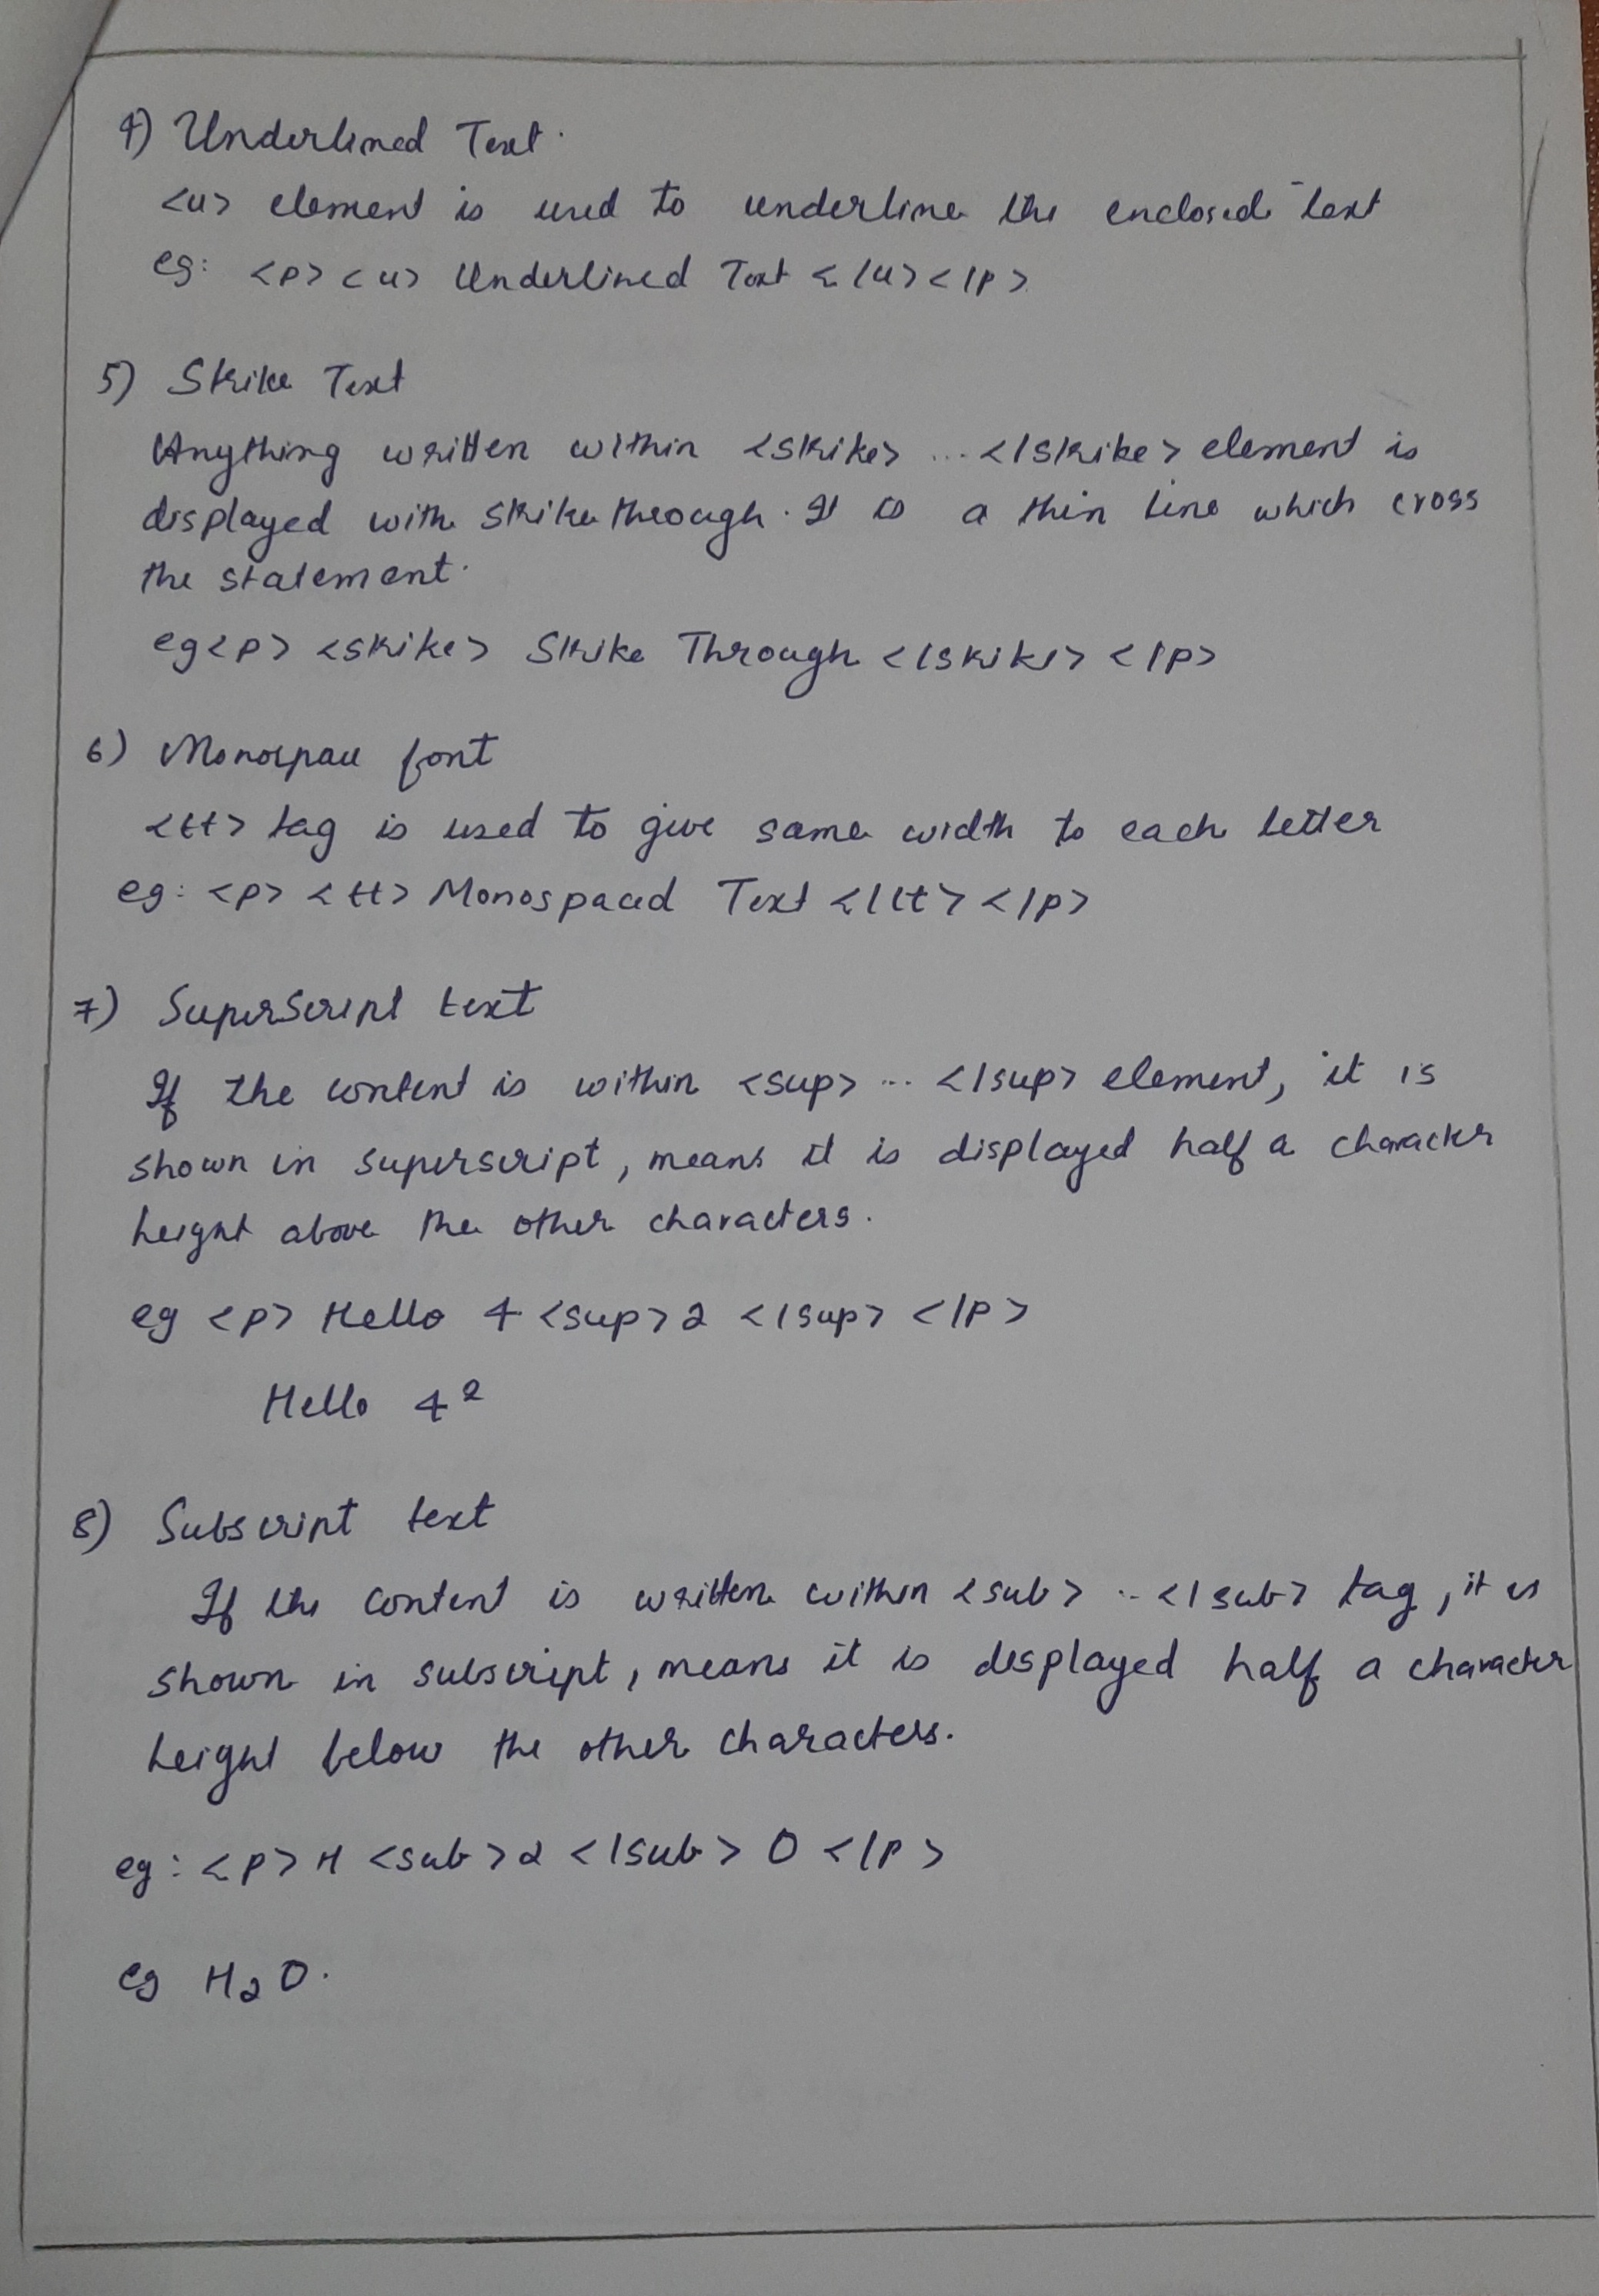 4) Underlined Text.
<u> element is used to underline the enclosed text
eg: <p> <u> Underlined Text </u> </p>
5) Strike Text
Anything written within <strike> ... </strike> element is
displayed with strikethrough. It is a thin line which cross
the statement.
eg <p> <strike> Strike Through </strike> </p>
6) Monospace font
<tt> tag is used to give same width to each letter
eg: <p> <tt> Monospaced Text </tt> </p>
7) SuperScript text
If the content is within <sup> ... </sup> element, it is
shown in superscript, means it is displayed half a character
height above the other characters.
eg <p> Hello 4 <sup> 2 </sup> </p>
Hello 4²
8) Subscript text
If the content is written within <sub> .. </sub> tag, it is
shown in subscript, means it is displayed half a character
height below the other characters.
eg: <p> H <sub> 2 </sub> O </p>
eg H₂O.